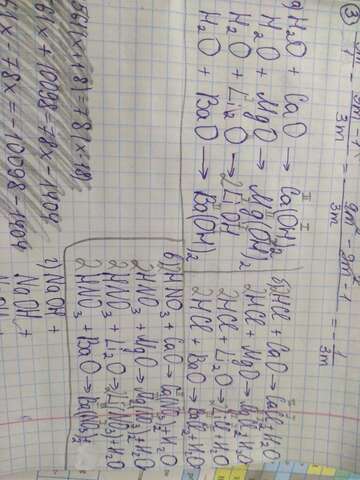 ③
= 9m² - 9m² - 1 / 3m = 1 / 3m
H₂O + CaO → Ca(OH)₂
H₂O + MgO → Mg(OH)₂
H₂O + Li₂O → 2LiOH
H₂O + BaO → Ba(OH)₂
б) 2HCl + CaO → CaCl₂ + H₂O
2HCl + MgO → MgCl₂ + H₂O
2HCl + Li₂O → LiCl + H₂O
2HCl + BaO → BaCl₂ + H₂O
в) 2HNO₃ + CaO → Ca(NO₃)₂ + H₂O
2HNO₃ + MgO → Mg(NO₃)₂ + H₂O
2HNO₃ + Li₂O → LiNO₃ + H₂O
2HNO₃ + BaO → Ba(NO₃)₂ + H₂O
561(x+18)=78(x-18)
561x + 10098 = 78x - 1404
561x - 78x = -10098 - 1404
г) NaOH +
NaOH +